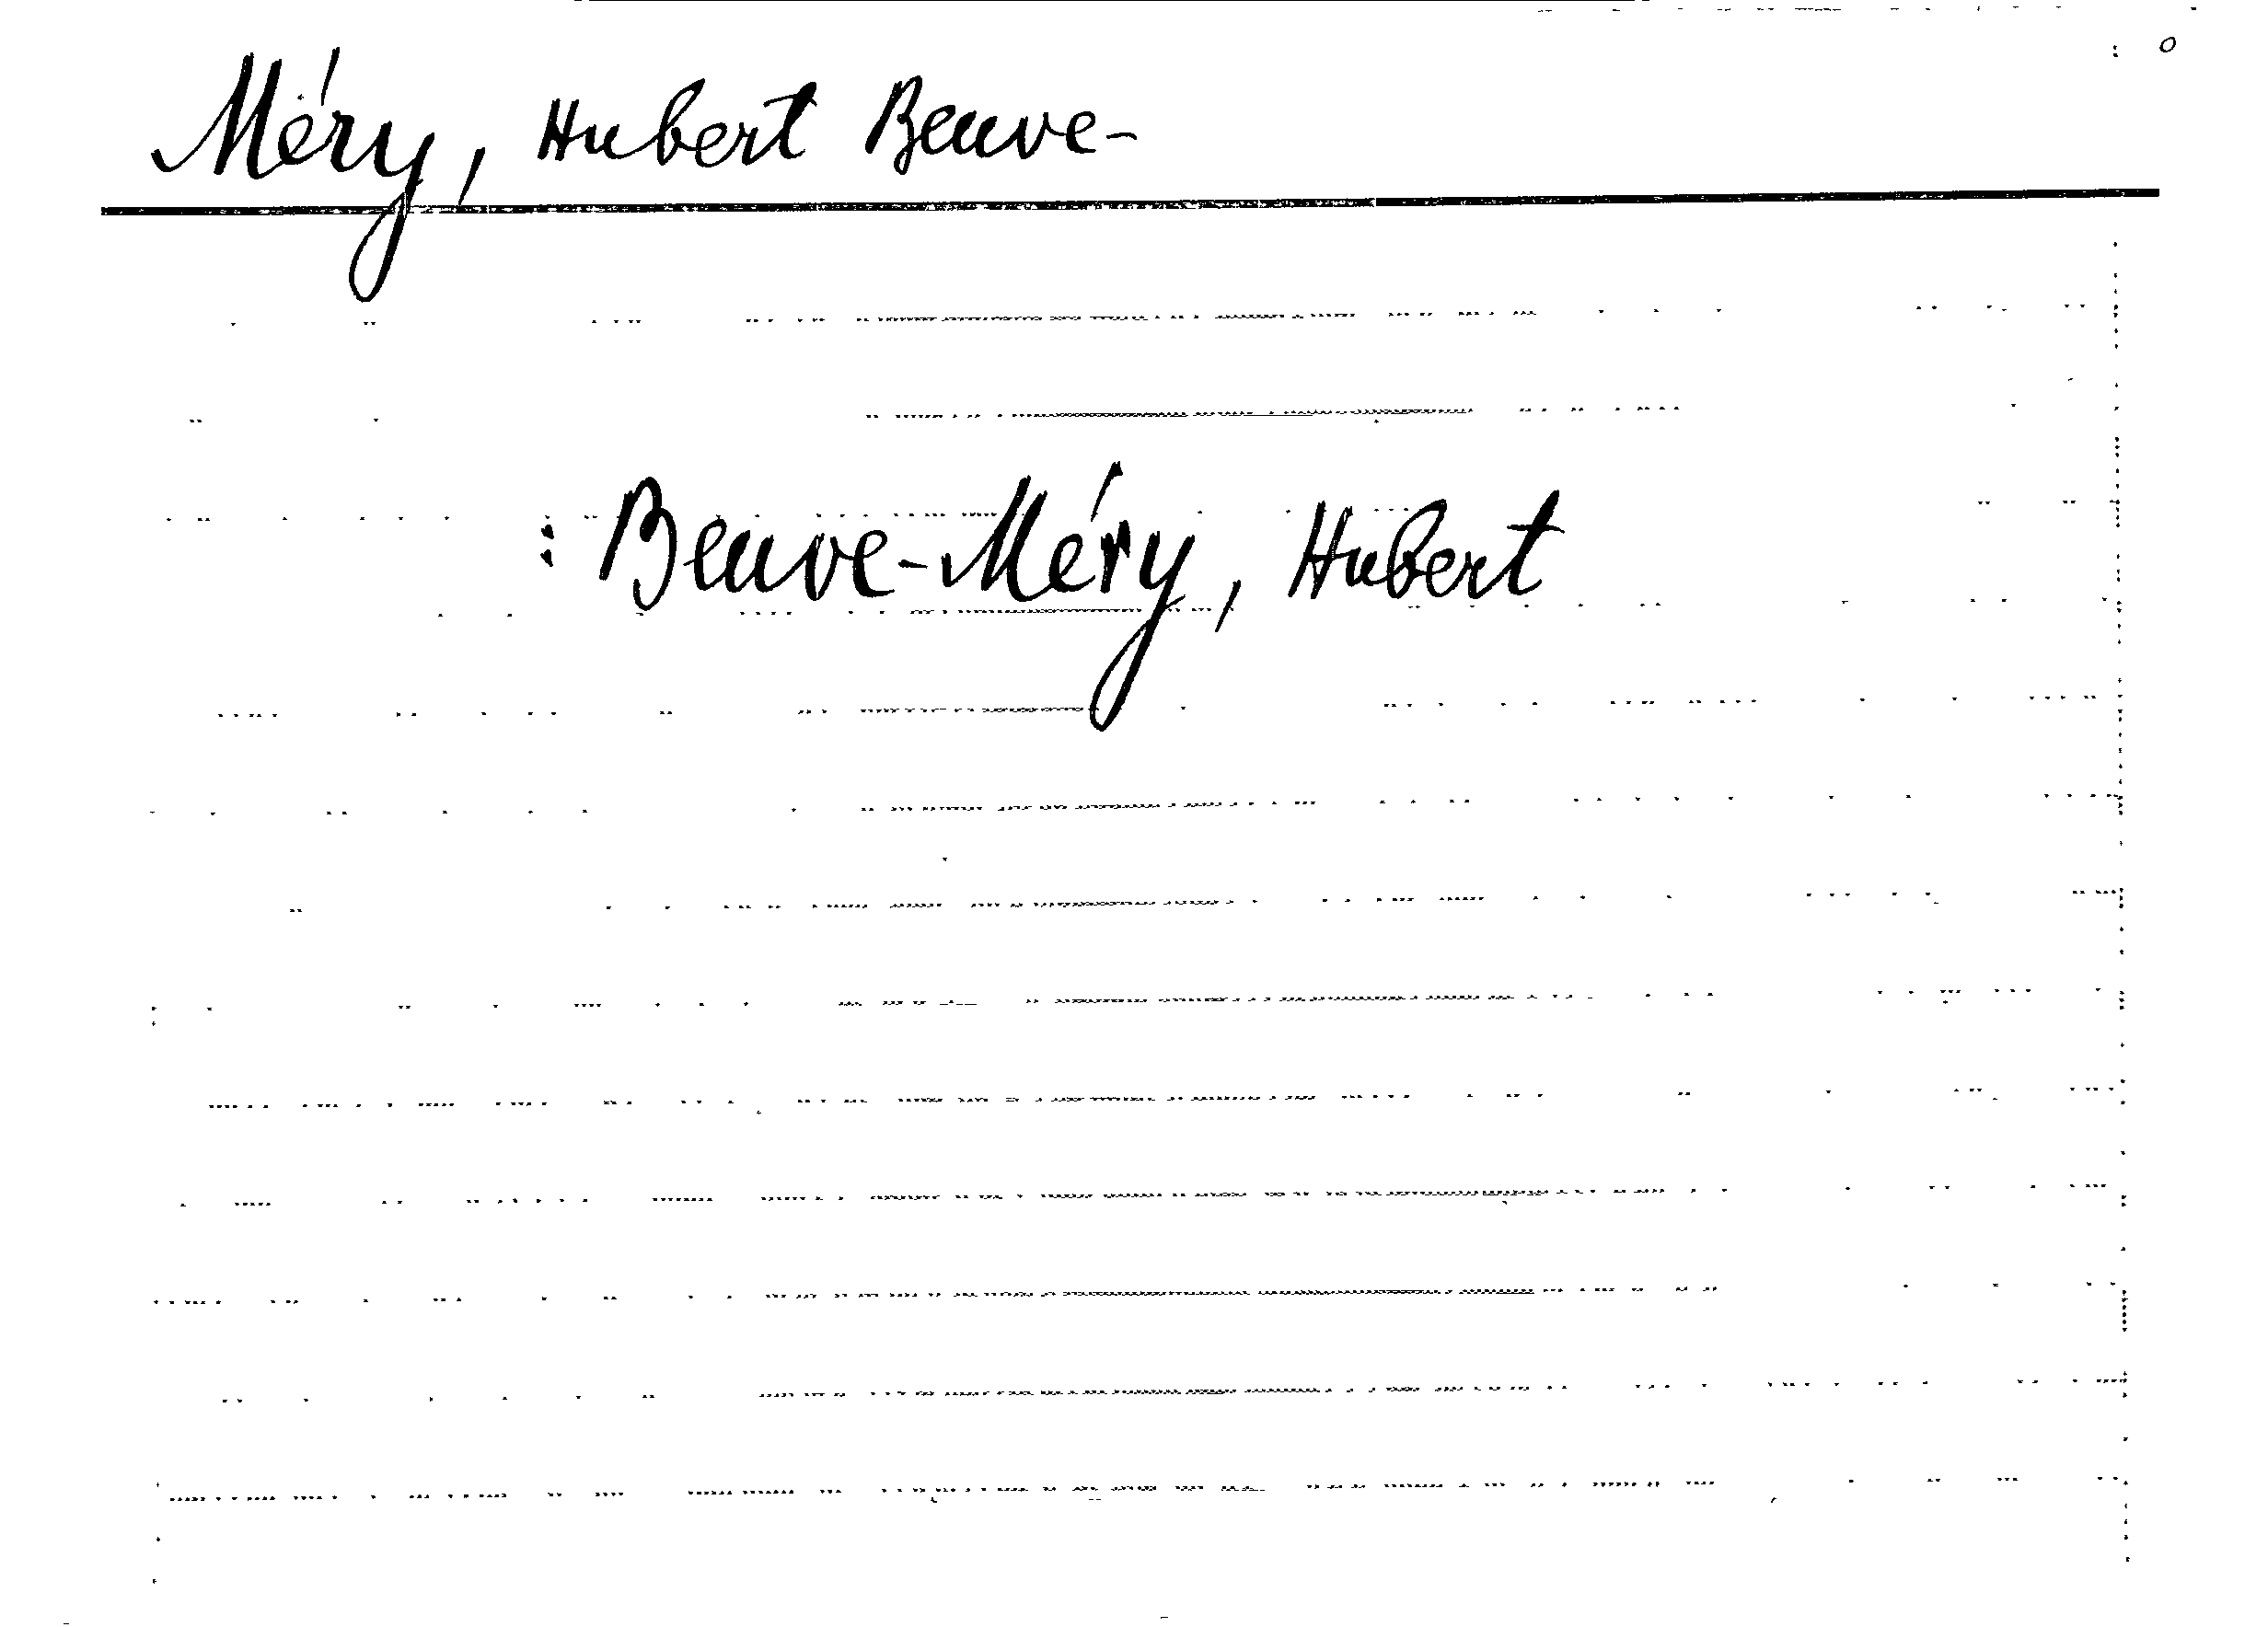 Méry, Hubert Beuve-
: Beuve-Méry, Hubert